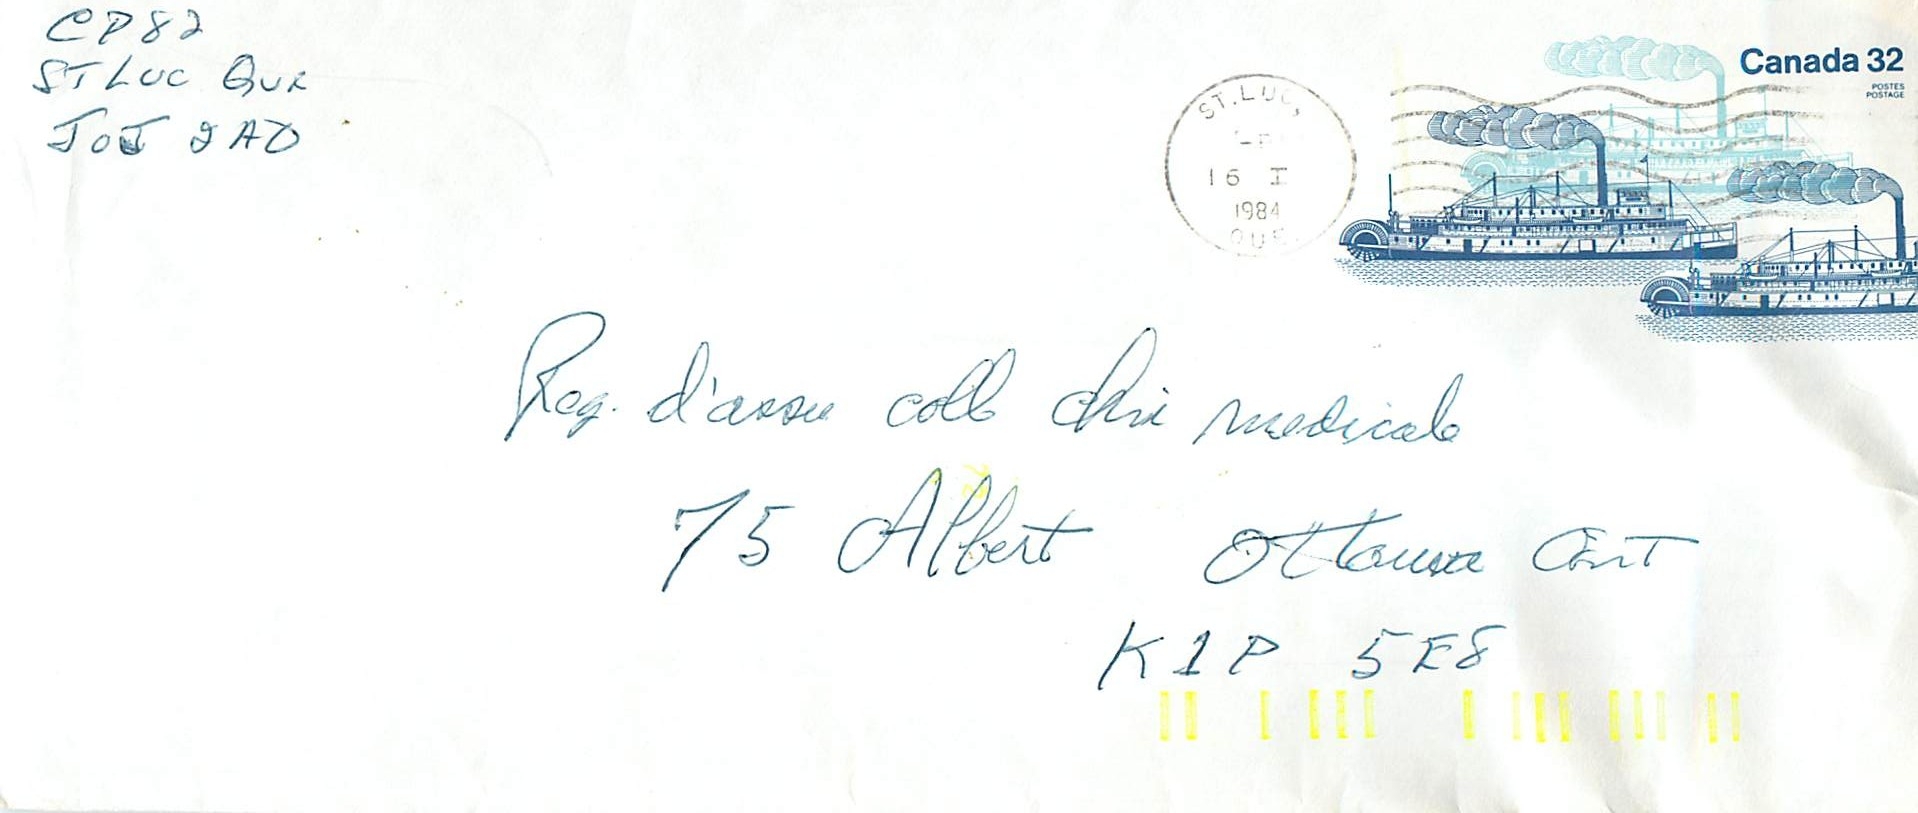 CP82
ST LUC QUE
J0J 2A0
Canada 32
POSTES
POSTAGE
ST. LUC,
16 I
1984
QUE.
Reg. d'assu coll chi medicale
75 Albert Ottawa Ont
K1P 5E8